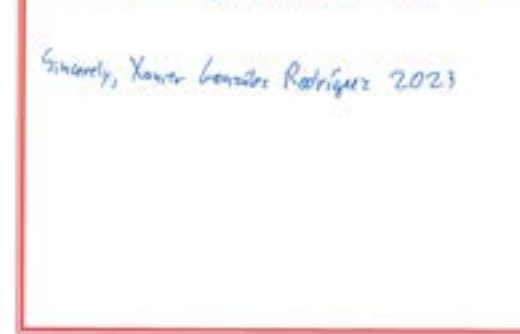 Sincerely, Xavier González Rodríguez 2023